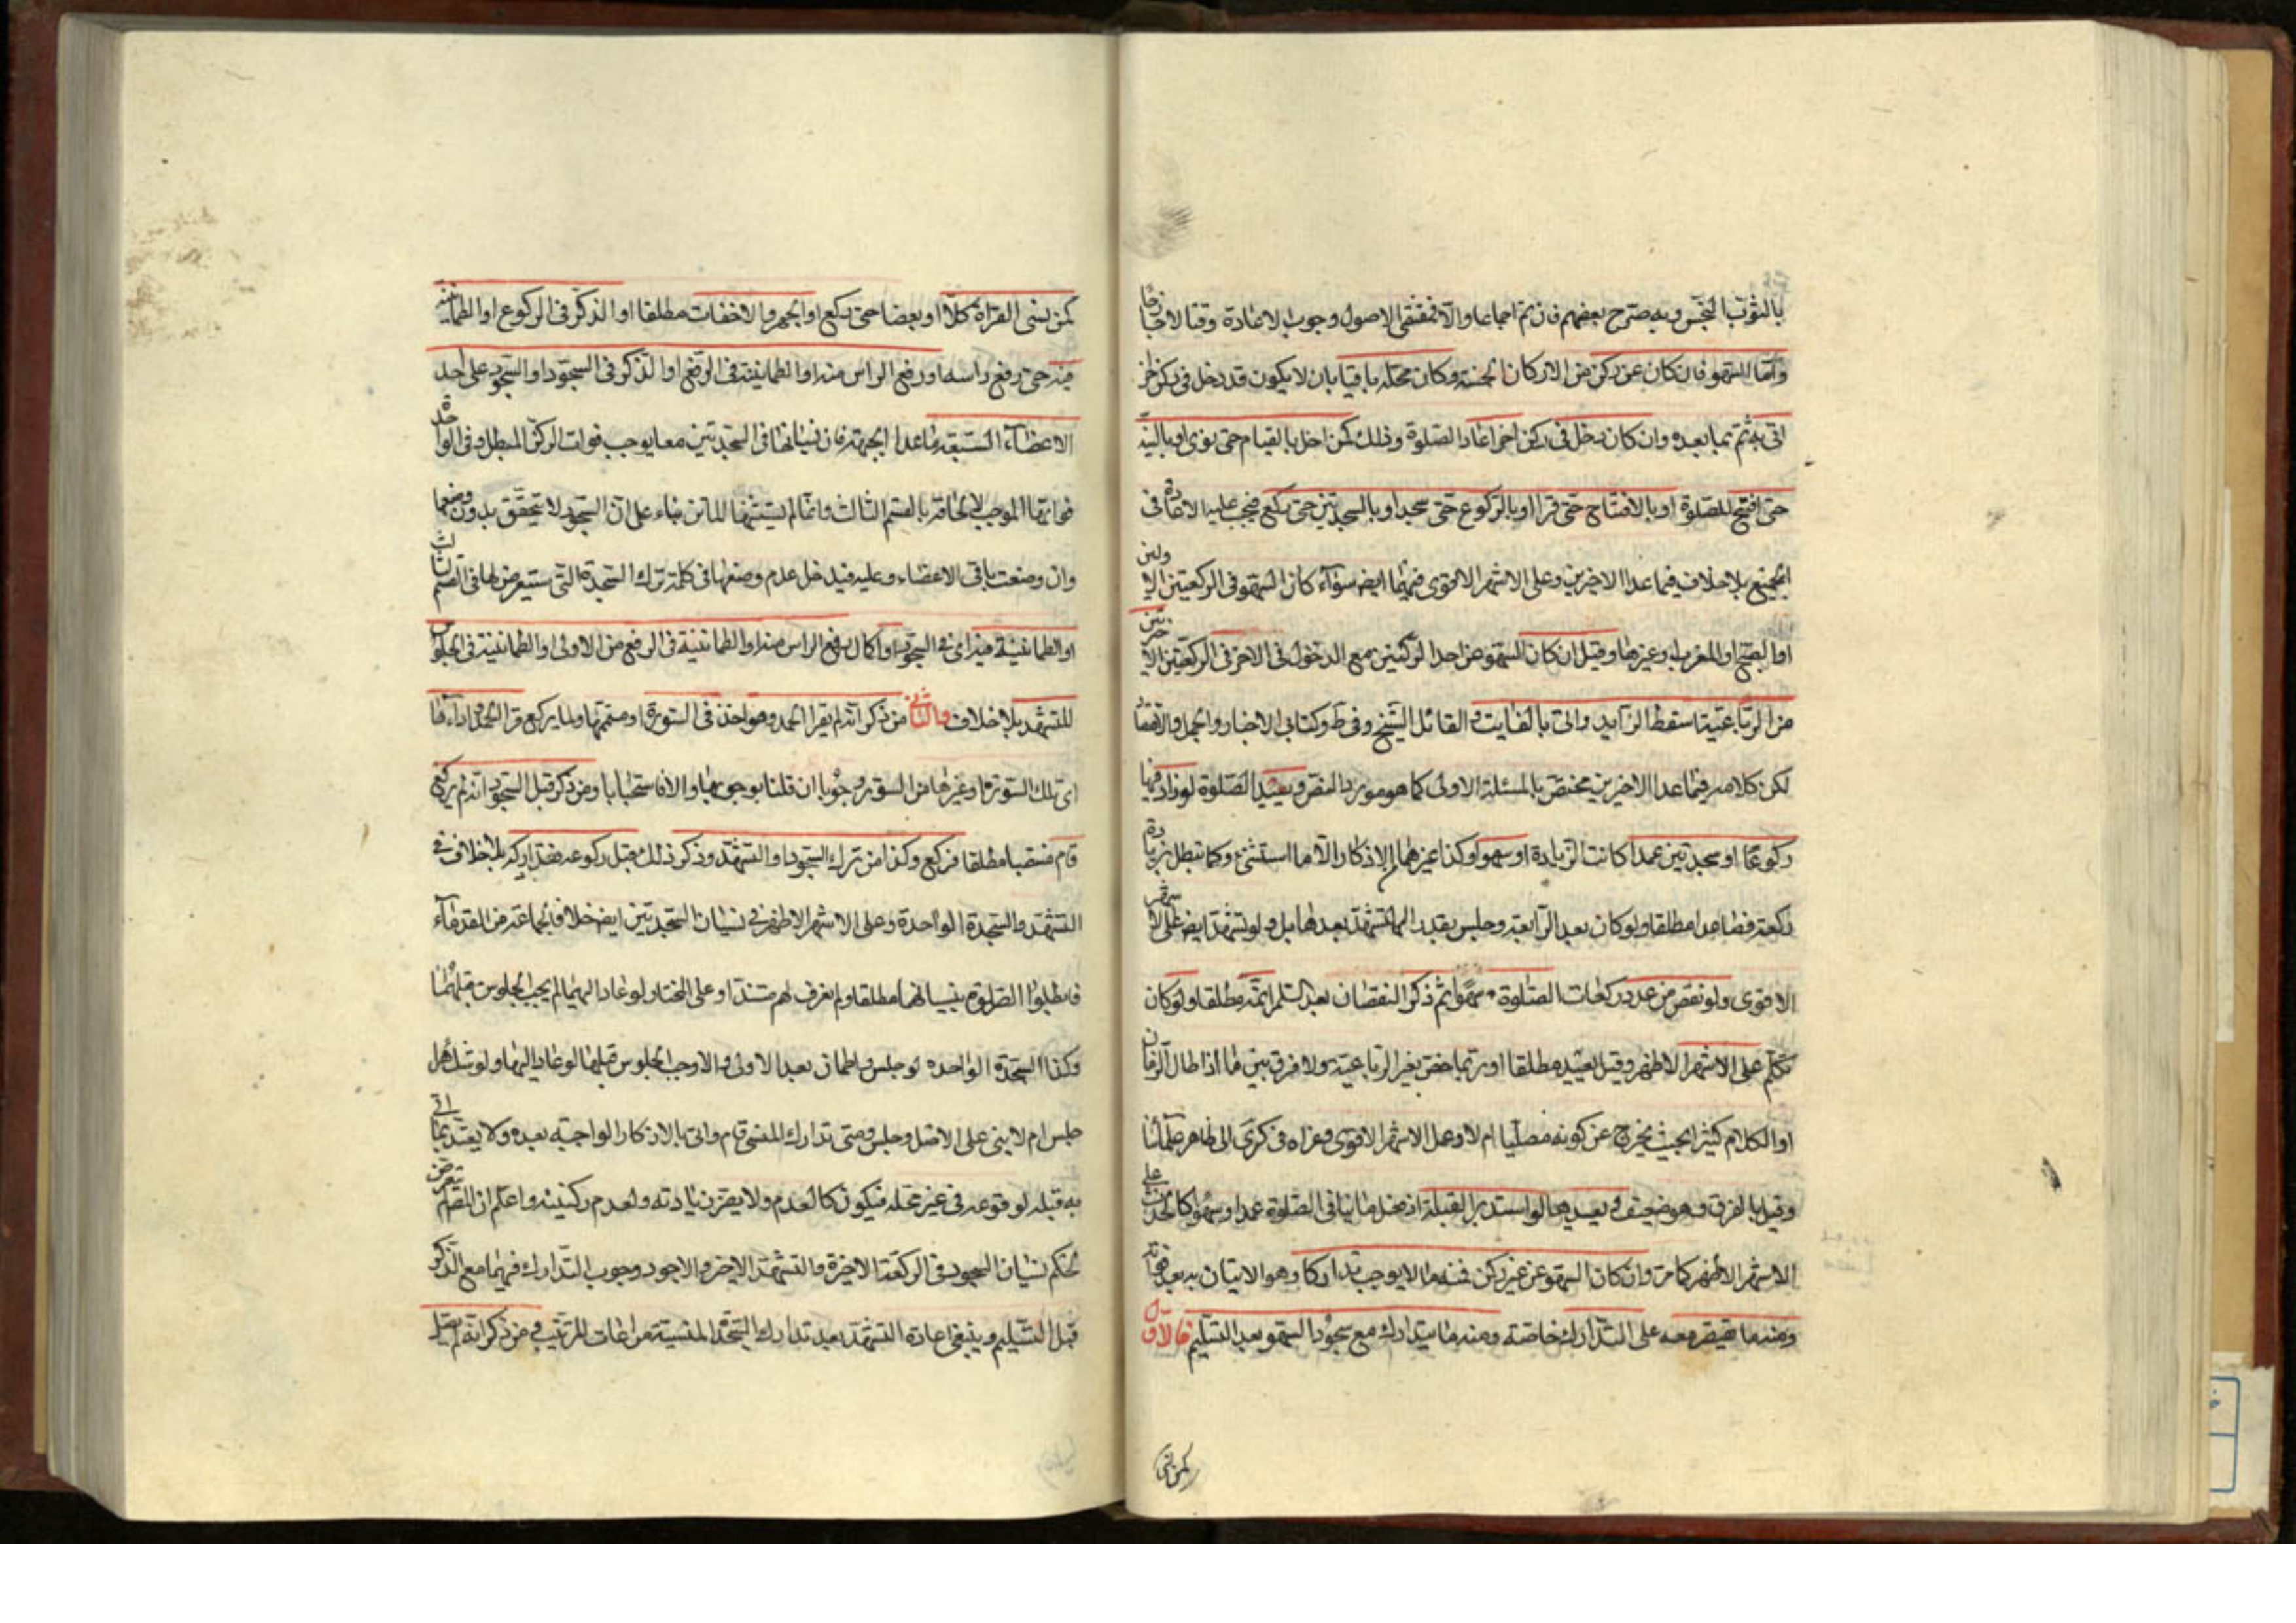 بالثوب النجس وبه صرح بعضهم فان تم اجماعا والا فمقتضى الاصول وجوب الاعادة وقتا لا خارجا
واما السهو فان كان عن ركن من الاركان الخمسة وكان محله باقيا بان لا يكون قد دخل في ركن اخر
اتى به ثم بما بعده وان كان دخل في ركن اخر اعاد الصلوة وذلك كمن اخل بالقيام حتى نوى او بالنية
حتى افتتح الصلوة او بالافتتاح حتى قرا او بالركوع حتى سجد او بالسجدتين حتى ركع فيجب عليه الاعادة في
الجميع بلا خلاف فيما عدا الاخيرين وعلى الاشهر الاقوى فيهما ايض سواء كان السهو في الركعتين الاولين
او الصبح او المغرب او غيرها وقيل ان كان السهو عن احد الركنين مع الدخول في الاخر في الركعتين الاخرتين
من الرباعية اسقط الزايد واتى بالفايت والقائل الشيخ في ط وكتابي الاخبار والجمل والاقتصا
لكن كلامه فيما عدا الاخيرين مختص بالمسئلة الاولى كما هو مورد النص ويعيد الصلوة لو زاد فيها
ركوعا او سجدتين عمدا كانت الزيادة او سهوا وكذا غيرهما الاذكار الا ما استثنى وكما تبطل بزيادة
ركعة فصاعدا مطلقا ولو كان بعد الرابعة وجلس بقدر التشهد بعدها بل ولو تشهد ايض على الاشهر
الاقوى ولو نقص من عدد ركعات الصلوة سهوا ثم ذكر النقصان بعد السلم اتمه مطلقا ولو كان
تكلم على الاشهر الاظهر وقيل يعيده مطلقا او ربما خص بغير الرباعية ولا فرق بين ما اذا طال الزمان
او الكلام كثيرا بحيث يخرج عن كونه مصليا ام لا وعلى الاشهر الاقوى وعزاه في كرى الى ظاهر علمائنا
وقيل بالفرق وهو ضعيف ويعيدها لو استدبر القبلة او فعل ما ينافي الصلوة عمدا وسهوا كالحدث على
الاشهر الاظهر كما مر وان كان السهو عن غير ركن فمنه ما لا يوجب تداركا وهو الاتيان به بعد فواته
ومنه ما يقتصر معه على التدارك خاصة ومنه ما يتدارك مع سجود السهو بعد التسليم فالاول
كمن نسى
كمن نسى القراة كلا او بعضا حتى ركع او الجهر والاخفات مطلقا او الذكر في الركوع او الطمانينة
فيه حتى رفع راسه او رفع الراس منه او الطمانينة في الرفع او الذكر في السجود او السجود على احد
الاعضاء السبعة ما عدا الجبهة فان نسيانها في السجدتين معا يوجب فوات الركن المبطل وفي الواحدة
فواتها الموجب لالحاقه بالقسم الثالث وانما لم يستثنها الماتن بناء على ان السجود لا تتحقق بدون وضعها
وان وضعت باقي الاعضاء وعليه فيدخل عدم وضعها في كلمة ترك السجدة التي ستعرض لها في القسم الثالث
او الطمانينة فيه اى في السجود او اكمال رفع الراس منه او الطمانينة في الرفع من الاولى او الطمانينة في الجلوس
للتشهد بلا خلاف والثاني من ذكر انه لم يقرا الحمد وهو اخذ في السورة او متممها ولما يركع قرا الحمد واعادها
اى تلك السورة او غيرها من السور وجوبا ان قلنا بوجوبها والا فاستحبابا ومن ذكر قبل السجود انه لم يركع
قام منتصبا مطلقا فركع وكذا من ترك السجود او التشهد وذكر ذلك قبل ركوعه فتداركه بلا خلاف في
التشهد والسجدة الواحدة وعلى الاشهر الاظهر في نسيان السجدتين ايض خلافا لجماعة من القدماء
فابطلوا الصلوة بنسيانهما مطلقا ولم نعرف لهم مستندا وعلى المختار لو عاد اليهما لم يجب الجلوس قبلهما
وكذا السجدة الواحدة لو جلس واطمان بعد الاولى والا وجب الجلوس قبلها لو عاد اليها ولو شك هل
جلس ام لا بنى على الاصل وجلس ومتى تدارك المنسى قام واتى بالاذكار الواجبة بعده ولا يعتد بما اتى
به قبله لوقوعه في غير محله فيكون كالعدم ولا يضر زيادته ولعدم ركنيته واعلم ان المصم لم يتعرض
لحكم نسيان السجود في الركعة الاخيرة والتشهد الاخر والاجود وجوب التدارك فيهما مع الذكر
قبل التسليم وينبغي اعادة التشهد بعد تدارك السجدة المنسية مراعات للترتيب ومن ذكر انه لم يصل